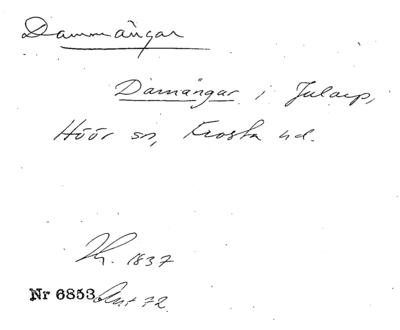 Dammängar
Damängar i Jularp,
Höör sn, Frosta hd.
1837
Nr 6853 72